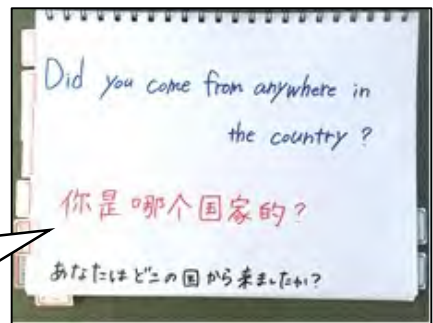 Did you come from anywhere in
the country ?
你是哪个国家的？
あなたはどこの国から来ましたか？